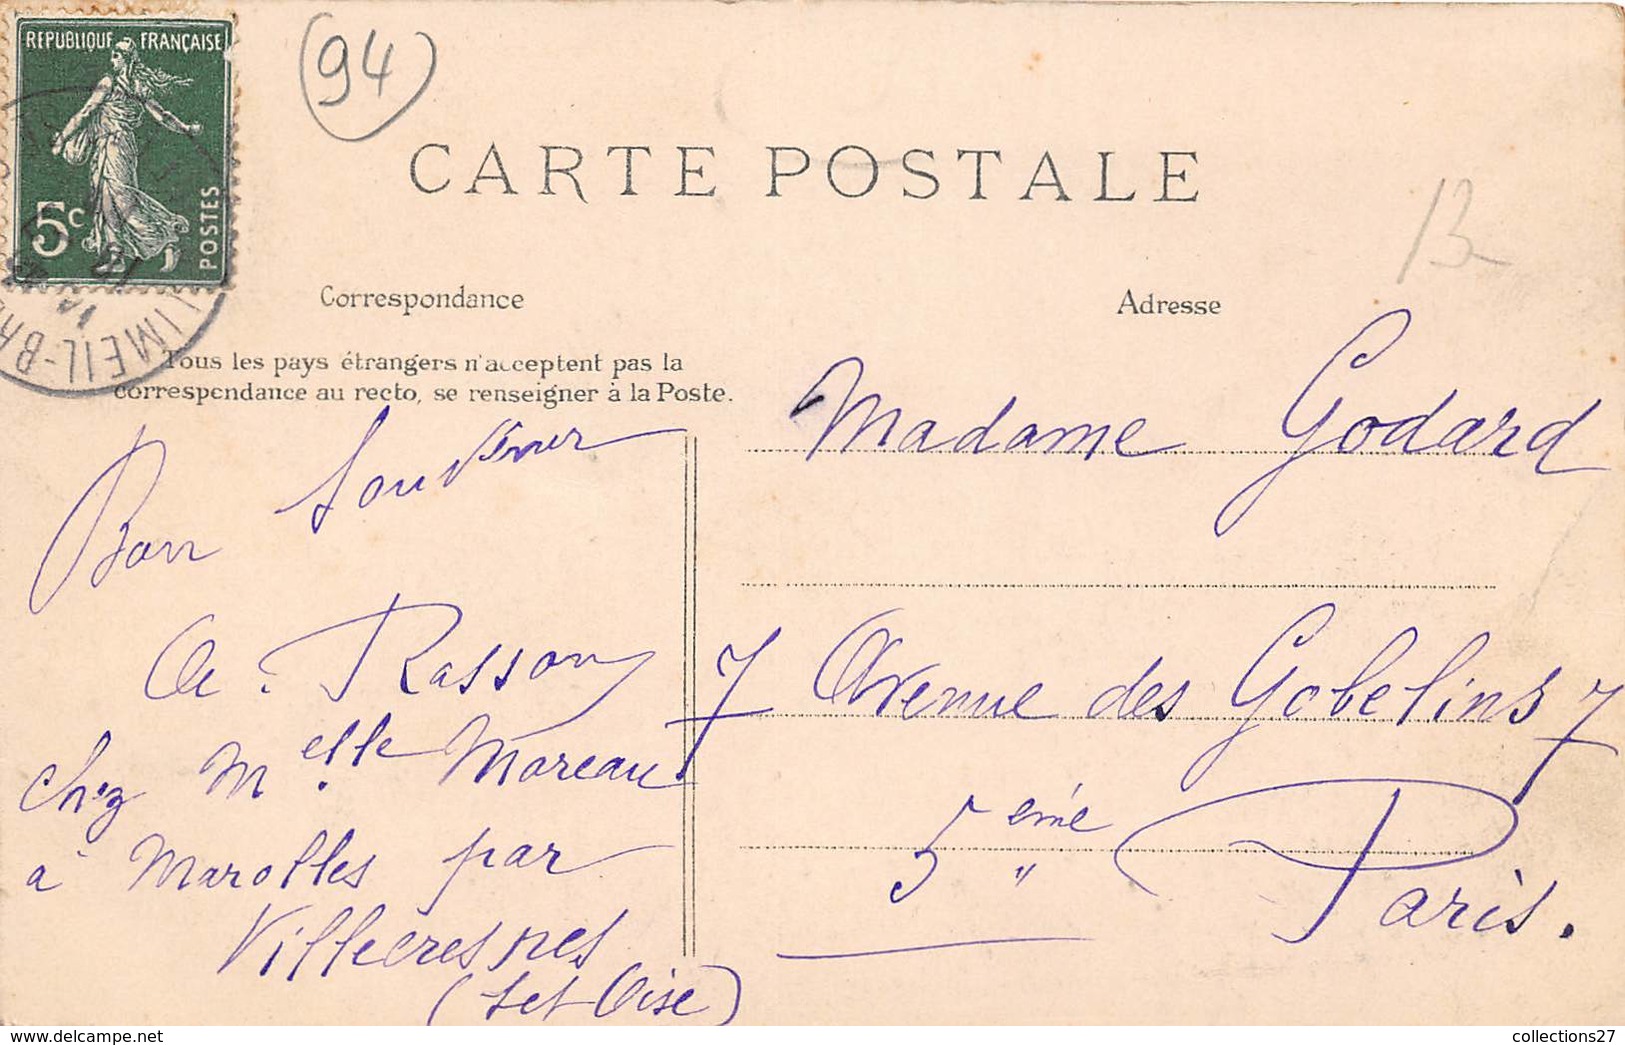 REPUBLIQUE FRANÇAISE
5c
POSTES
LIMEIL-BR
(94)
CARTE POSTALE
13
Correspondance
Tous les pays étrangers n'acceptent pas la
correspondance au recto, se renseigner à la Poste.
Bon Souvenir
A. Rasson
Chez Melle Moreau
à Marolles par
Villecresnes
(Set Oise)
Adresse
Madame Godard
7 Avenue des Gobelins 7
5ème Paris.
collections27